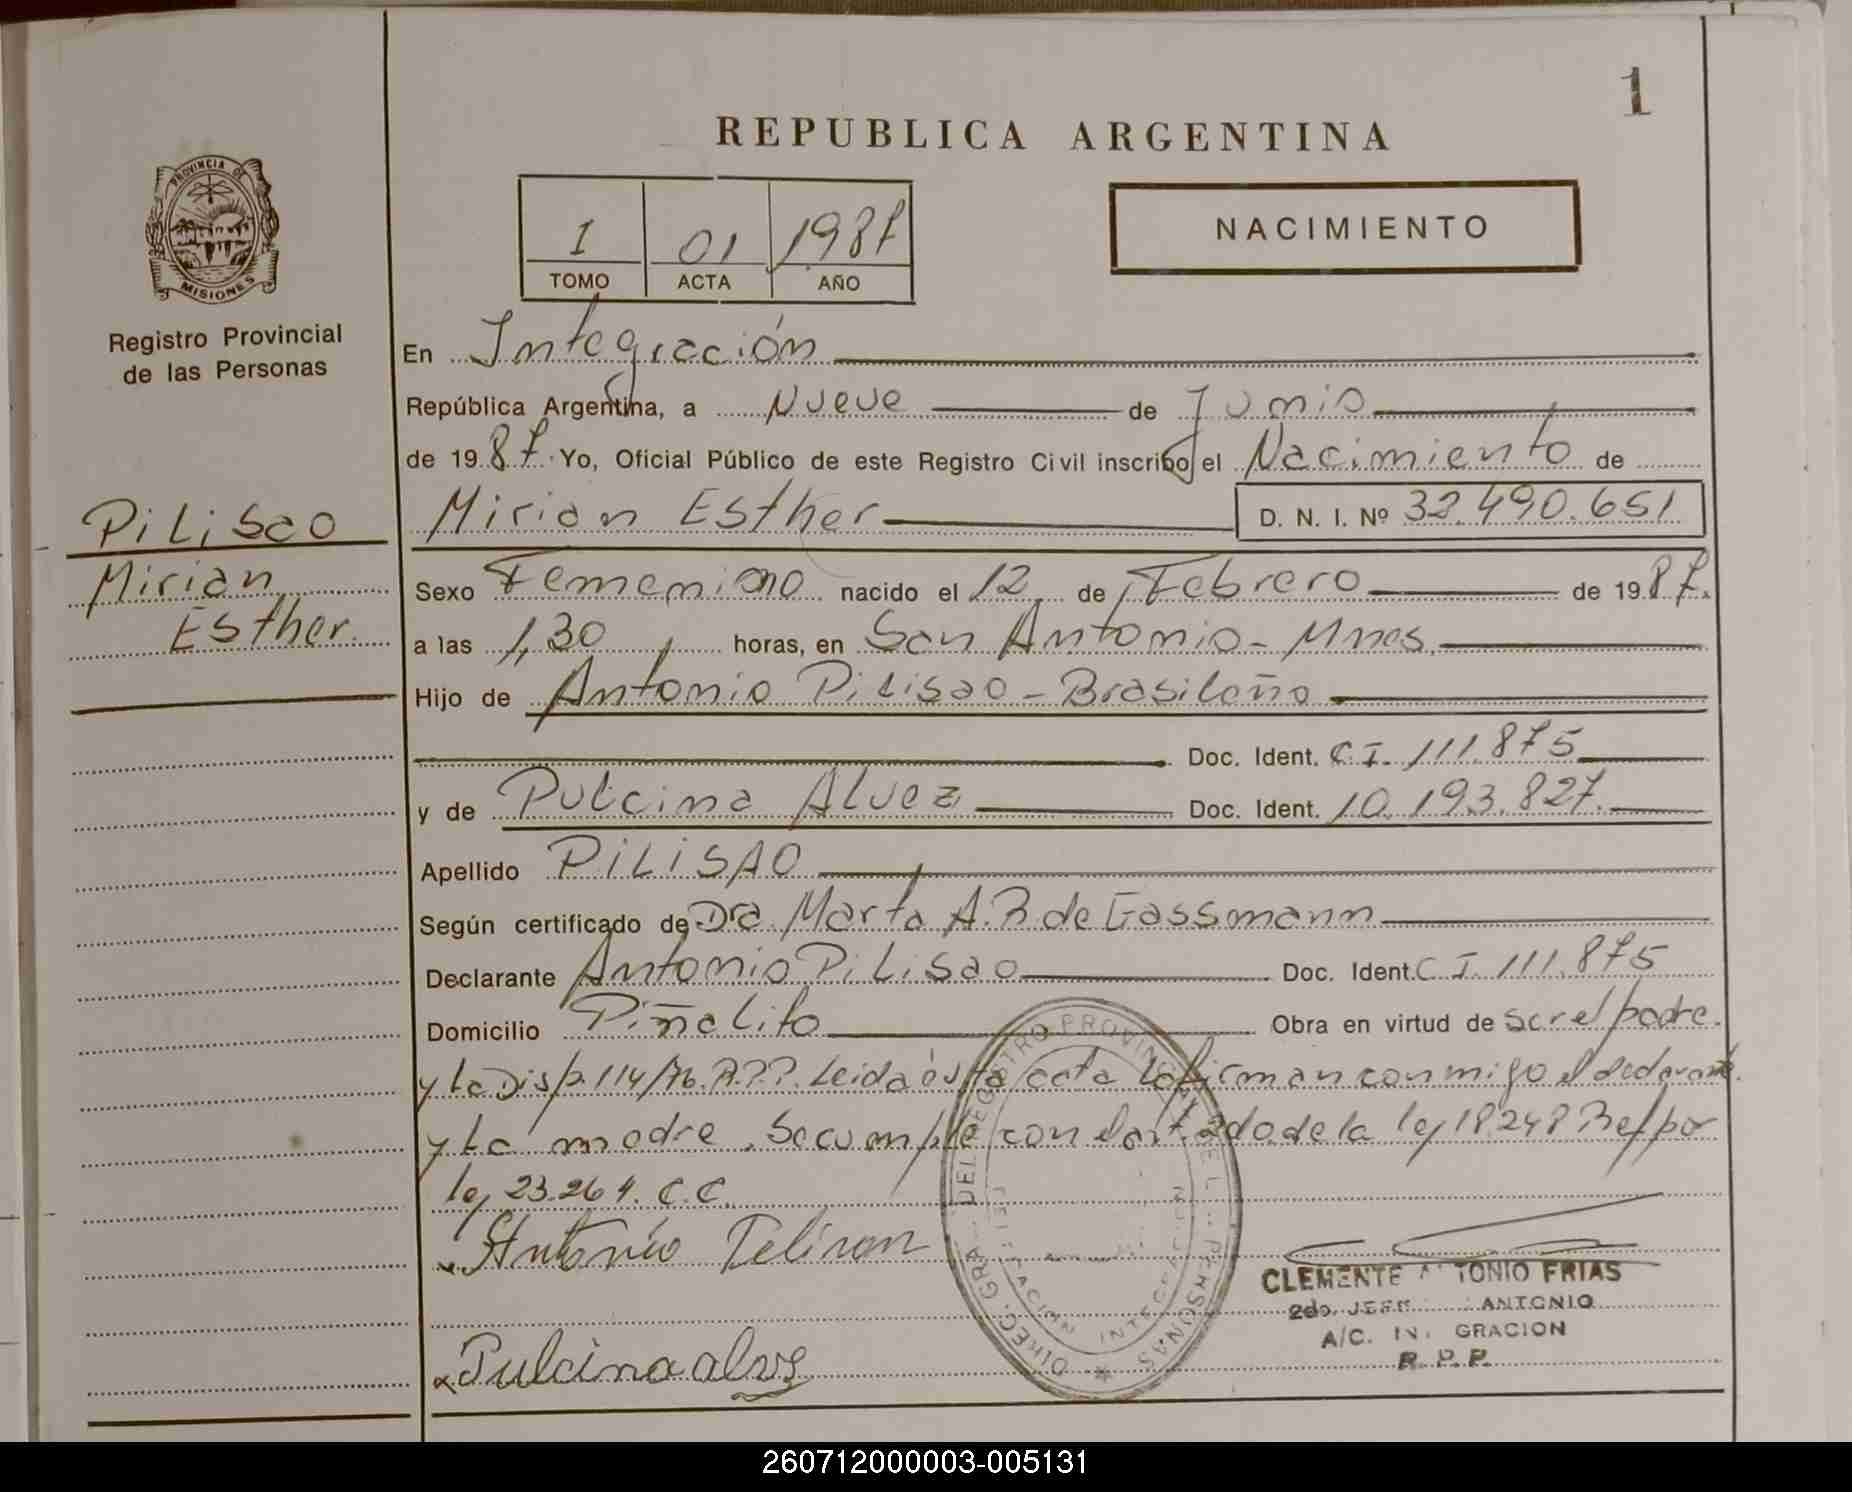 1
REPUBLICA ARGENTINA
PROVINCIA DE
MISIONES
Registro Provincial
de las Personas
1 01 1987
TOMO ACTA AÑO
NACIMIENTO
En Integración
República Argentina, a Nueve de Junio
de 1987. Yo, Oficial Público de este Registro Civil inscribo el Nacimiento de
Mirian Esther D. N. I. Nº 32.490.651
PiLiSao
Mirian
Esther
Sexo Femenino nacido el 12 de Febrero de 1987.
a las 1,30 horas, en San Antonio - Mnes.
Hijo de Antonio Pilisao - Brasileño
Doc. Ident. C.I. 111.875
y de Pulcina Alvez Doc. Ident. 10.193.827.
Apellido PiLiSAO
Según certificado de Dra Marta A.R. de Gassmann
Declarante Antonio PiLisao Doc. Ident. C I. 111.875
Domicilio PiñaLito Obra en virtud de ser el padre.
y la Disp. 114/76. R.P.P. Leida ésta acta la firman conmigo el declarante
y la madre. Se cumple con el art. 2do. de la ley 18.248 Ref por
ley 23.264. C.C.
Antonio Pelisan
Pulcina alvs
DIREC. GRAL. DEL REGISTRO PROVINCIAL DE L. PERSONAS
DELEGACION INTEGRACION
CLEMENTE ANTONIO FRIAS
2do. JEFE ANTONIO
A/C. IN GRACION
R. P. P.
260712000003-005131